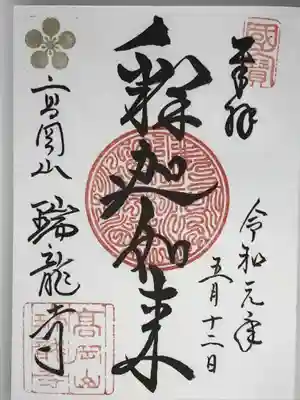 國寶
奉拝
令和元年
五月十二日
釋迦如来
高岡山 瑞龍寺
高岡山
瑞龍寺